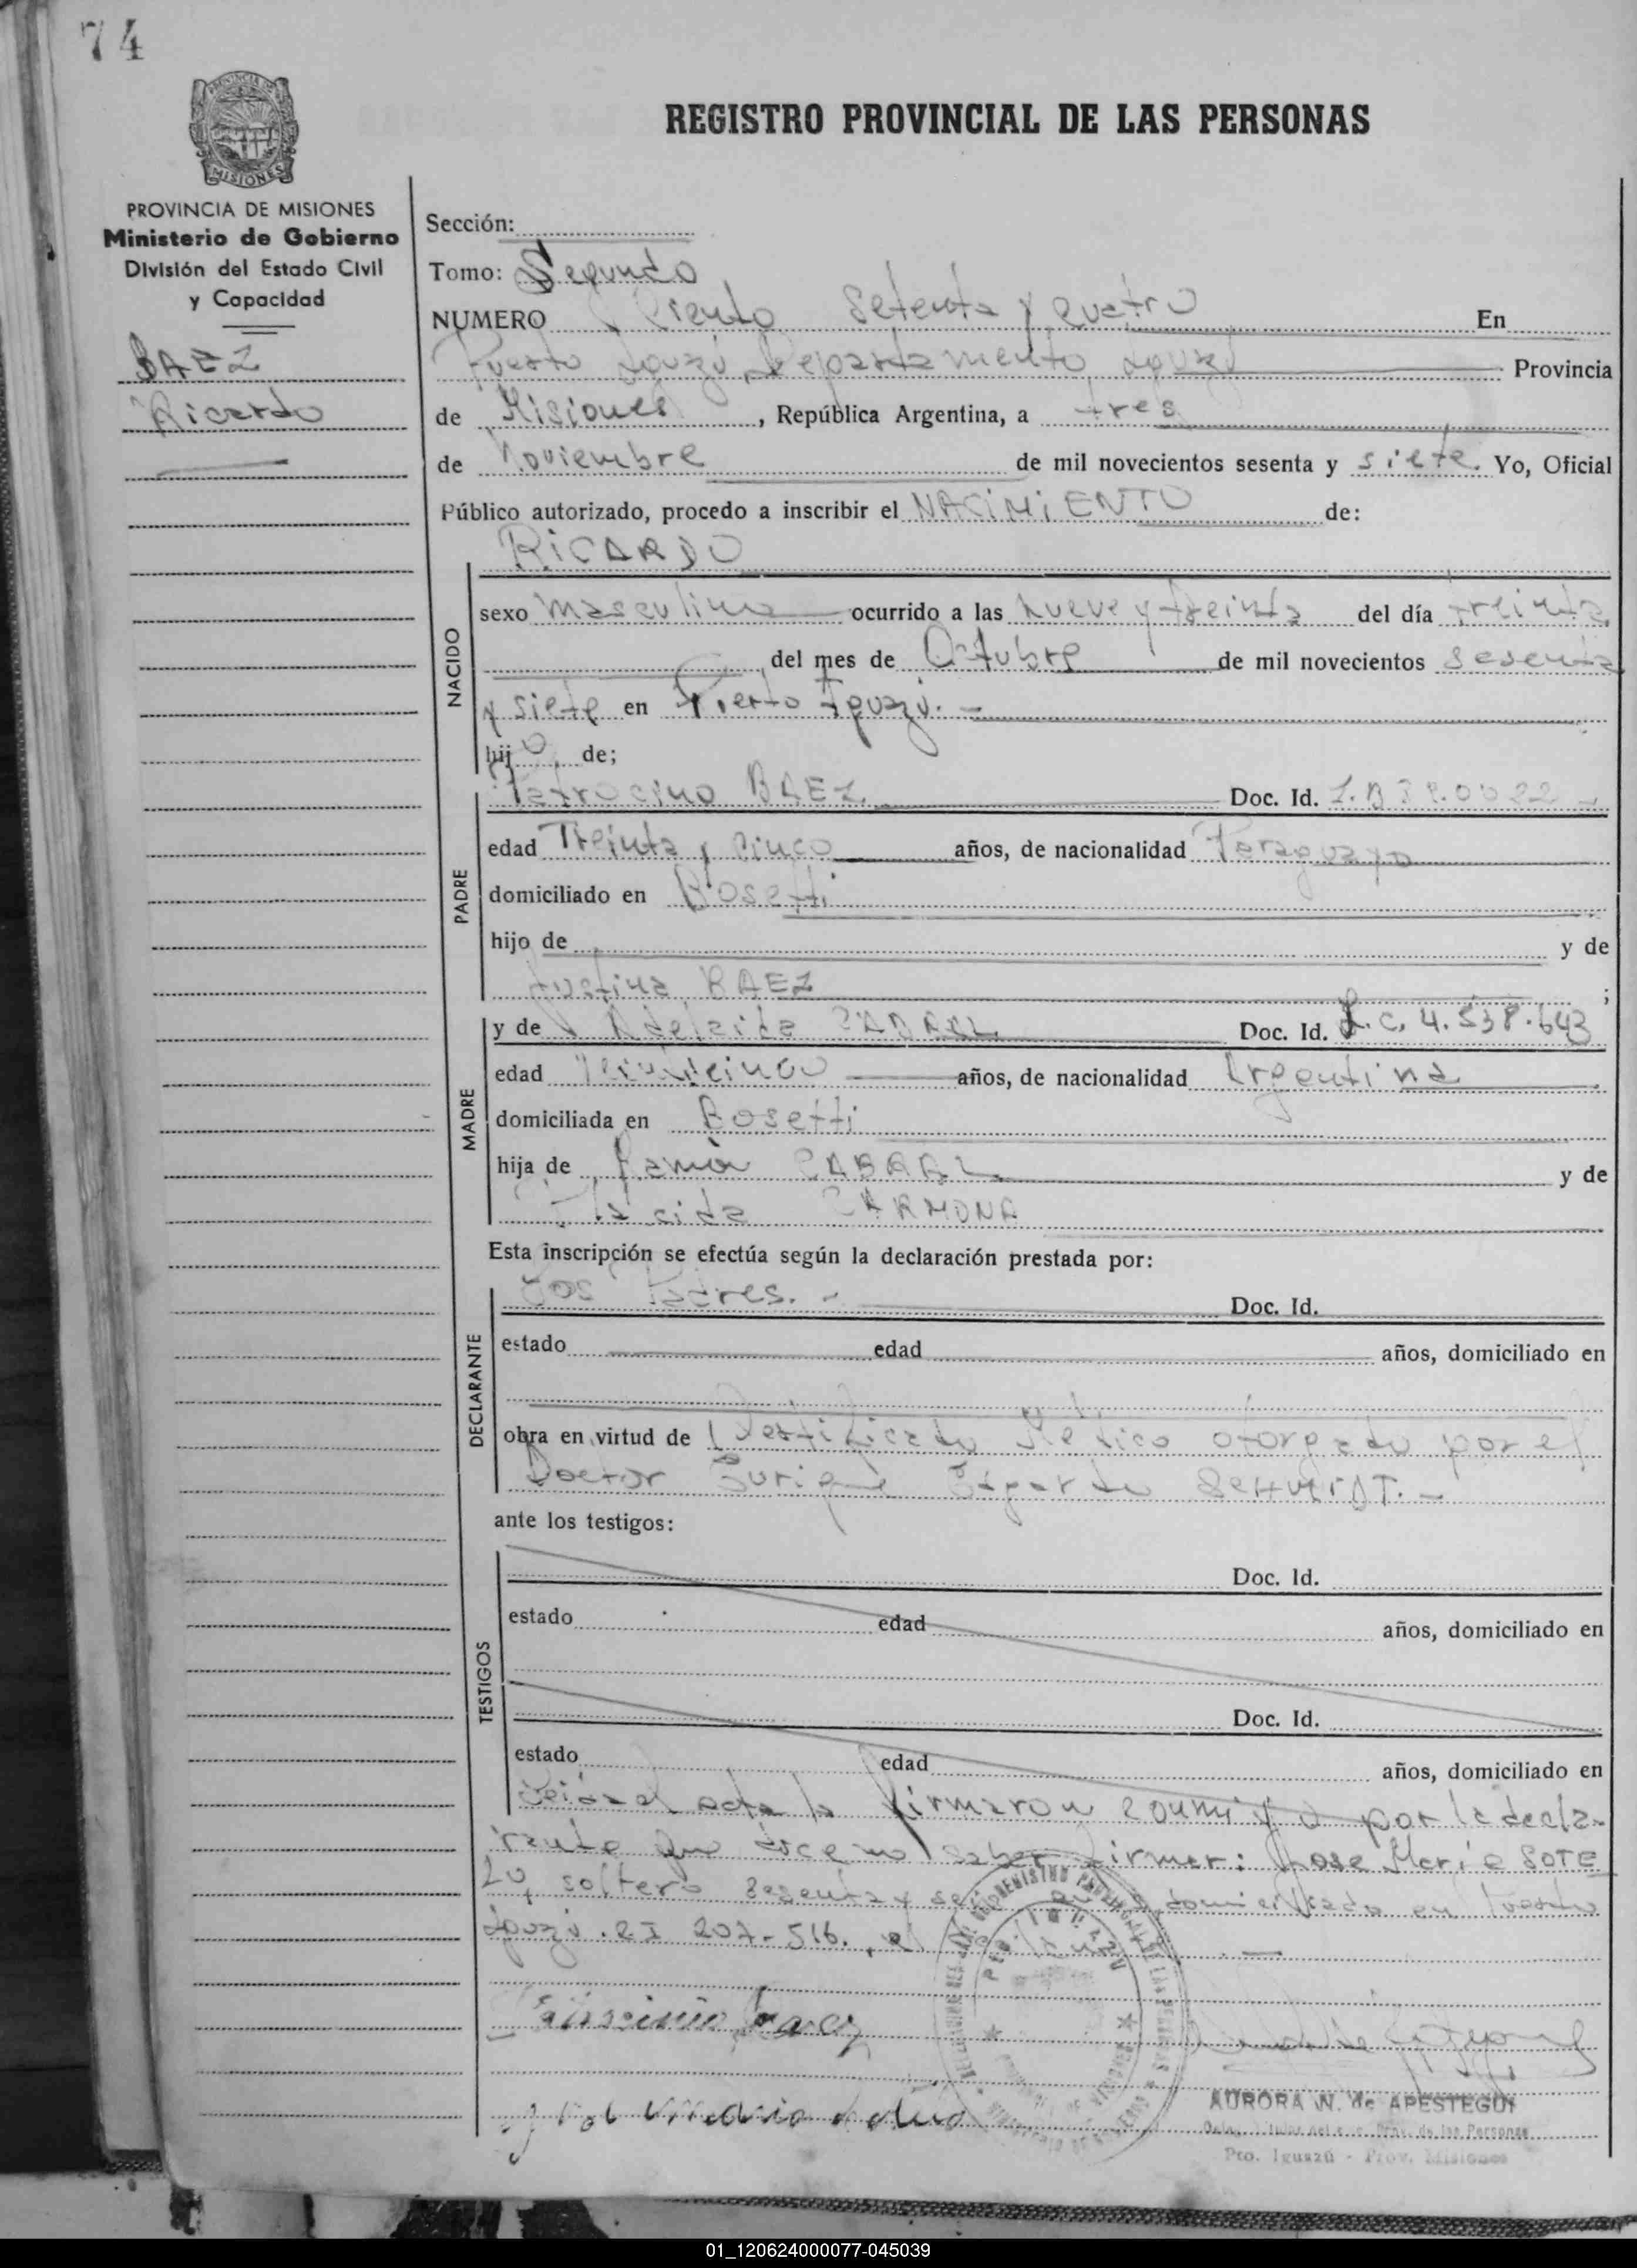 74
PROVINCIA DE MISIONES
Ministerio de Gobierno
División del Estado Civil
y Capacidad
BAEZ
Ricardo
REGISTRO PROVINCIAL DE LAS PERSONAS
Sección:
Tomo: Segundo
NUMERO Ciento Setenta y cuatro En
Puerto Iguazú Departamento Iguazú Provincia
de Misiones, República Argentina, a tres
de Noviembre de mil novecientos sesenta y siete. Yo, Oficial
Público autorizado, procedo a inscribir el NACIMIENTO de:
RICARDO
NACIDO
sexo masculino ocurrido a las nueve y treinta del día treinta
del mes de Octubre de mil novecientos sesenta
y siete en Puerto Iguazú.-
hijo de;
PADRE
Patrocino BAEZ Doc. Id.
edad Treinta y cinco años, de nacionalidad Paraguayo
domiciliado en Bosetti
hijo de y de
Justina BAEZ ;
MADRE
y de Adelaida CABRAL Doc. Id. L.C. 4.538.643
edad años, de nacionalidad Argentina
domiciliada en Bosetti
hija de Ramón CABRAL y de
Plácida CARMONA
Esta inscripción se efectúa según la declaración prestada por:
DECLARANTE
Los Padres.- Doc. Id.
estado edad años, domiciliado en
obra en virtud de Certificado Médico otorgado por el
Doctor Enrique Edgardo SCHMIDT.-
ante los testigos:
TESTIGOS
Doc. Id.
estado edad años, domiciliado en
Doc. Id.
estado edad años, domiciliado en
Leída el acta la firmaron conmigo por la decla-
rante que dice no saber firmar: Jose María SOTE
LO, soltero sesenta y domiciliado en Puerto
Iguazú. CI 207-516.
AURORA N. de APESTEGUI
Pto. Iguazú - Prov. Misiones
01_120624000077-045039